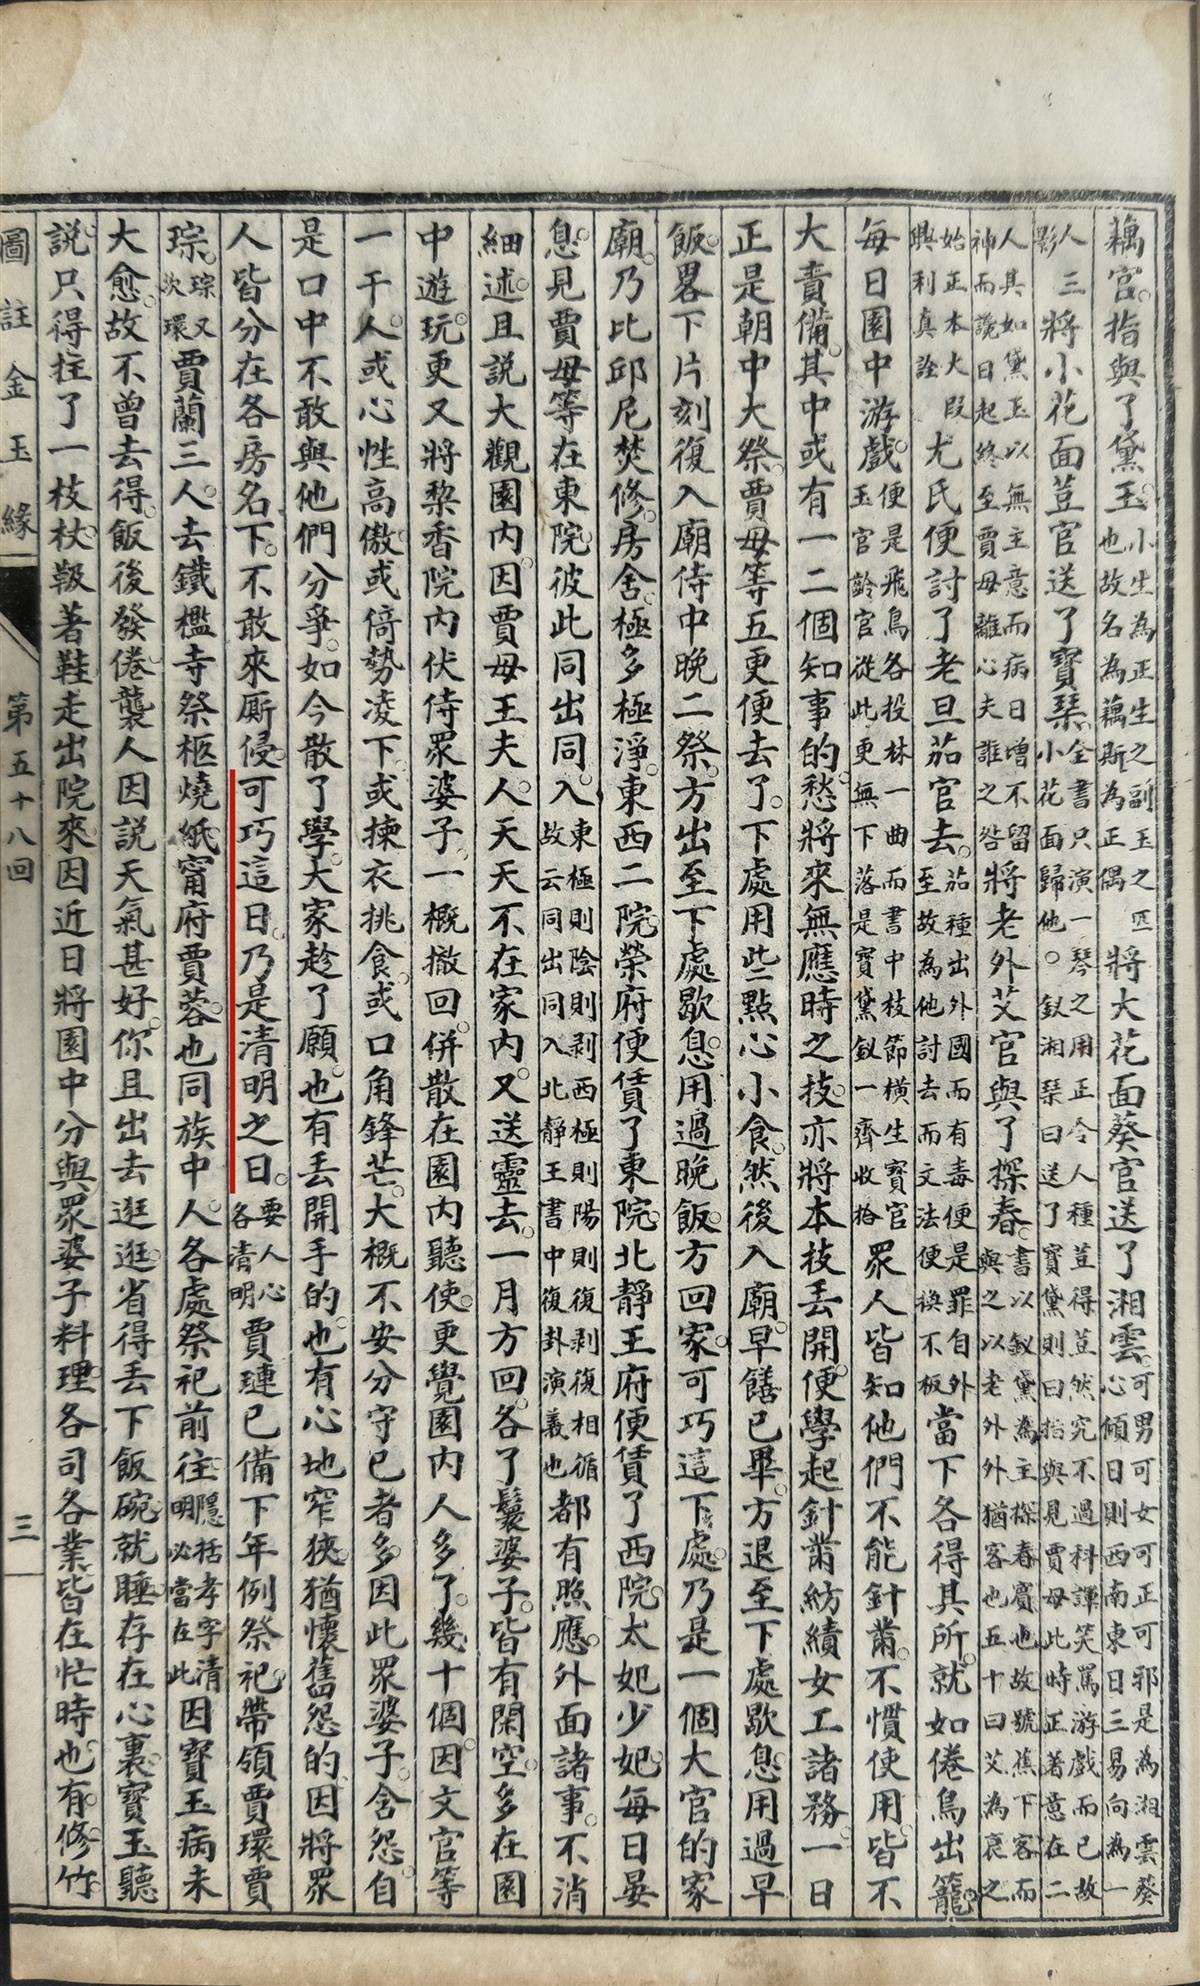 藕官。指與了黛玉。小生為正生之副玉之匹也故名為藕斯為正偶將大花面葵官送了湘雲。可男可女可正可邪是為湘雲葵心傾日則西南東日三易向為一
人影三將小花面荳官送了寶琴。全書只演一琴之用正令人種荳得荳然究不過科諢笑罵游戲而已故小花面歸他。釵湘琴曰送了寶黛則曰指與見賈母此時正著意在二
人其如黛玉以無主意而病日增不留神而讒日起終至賈母離心夫誰之咎將老外艾官與了探春。書以釵黛為主探春賓也故號蕉下客而與之以老外外猶客也五十曰艾為哀之
始正本大段興利真詮尤氏便討了老旦茄官去。茄種出外國而有毒便是罪自外至故為他討去而文法便換不板當下各得其所。就如倦鳥出籠。
每日園中游戲。便是飛鳥各投林一曲而書中枝節橫生寶官玉官齡官從此更無下落是寶黛釵一齊收拾眾人皆知他們不能針黹。不慣使用。皆不
大責備。其中或有一二個知事的。愁將來無應時之技。亦將本技丟開。便學起針黹紡績女工諸務。一日
正是朝中大祭。賈母等五更便去了。下處用些點心小食。然後入廟。早饍已畢。方退至下處歇息。用過早
飯。畧下片刻。復入廟侍中晚二祭。方出至下處歇息。用過晚飯。方回家。可巧這下處。乃是一個大官的家
廟。乃比邱尼焚修。房舍極多極淨。東西二院。榮府便賃了東院。北靜王府便賃了西院。太妃少妃。每日晏
息。見賈母等在東院。彼此同出同入。東極則陰則剥西極則陽則復剥復相循故云同出同入北靜王書中復卦演義也都有照應。外面諸事。不消
細述。且說大觀園內。因賈母王夫人。天天不在家內。又送靈去。一月方回。各丫鬟婆子。皆有閑空。多在園
中遊玩。更又將梨香院內伏侍眾婆子。一概撤回。併散在園內聽使。更覺園內人多了。幾十個。因文官等
一干人。或心性高傲。或倚勢凌下。或揀衣挑食。或口角鋒芒。大概不安分守己者多。因此眾婆子。含怨。自
是口中不敢與他們分爭。如今散了學。大家趁了願。也有丟開手的。也有心地窄狹。猶懷舊怨的。因將眾
人皆分在各房名下。不敢來厮侵。可巧這日。乃是清明之日。要人心各清明賈璉已備下年例祭祀。帶領賈環賈
琮。琮又次環賈蘭三人。去鐵檻寺祭柩燒紙。甯府賈蓉。也同族中人。各處祭祀前往。隱括孝字清明必當在此因寶玉病未
大愈。故不曾去得。飯後發倦。襲人因說天氣甚好。你且出去逛逛。省得丟下飯碗。就睡。存在心裏。寶玉聽
說。只得拄了一枝杖。靸著鞋。走出院來。因近日將園中分與眾婆子料理。各司各業。皆在忙時。也有。修竹
圖註金玉緣 第五十八回 三